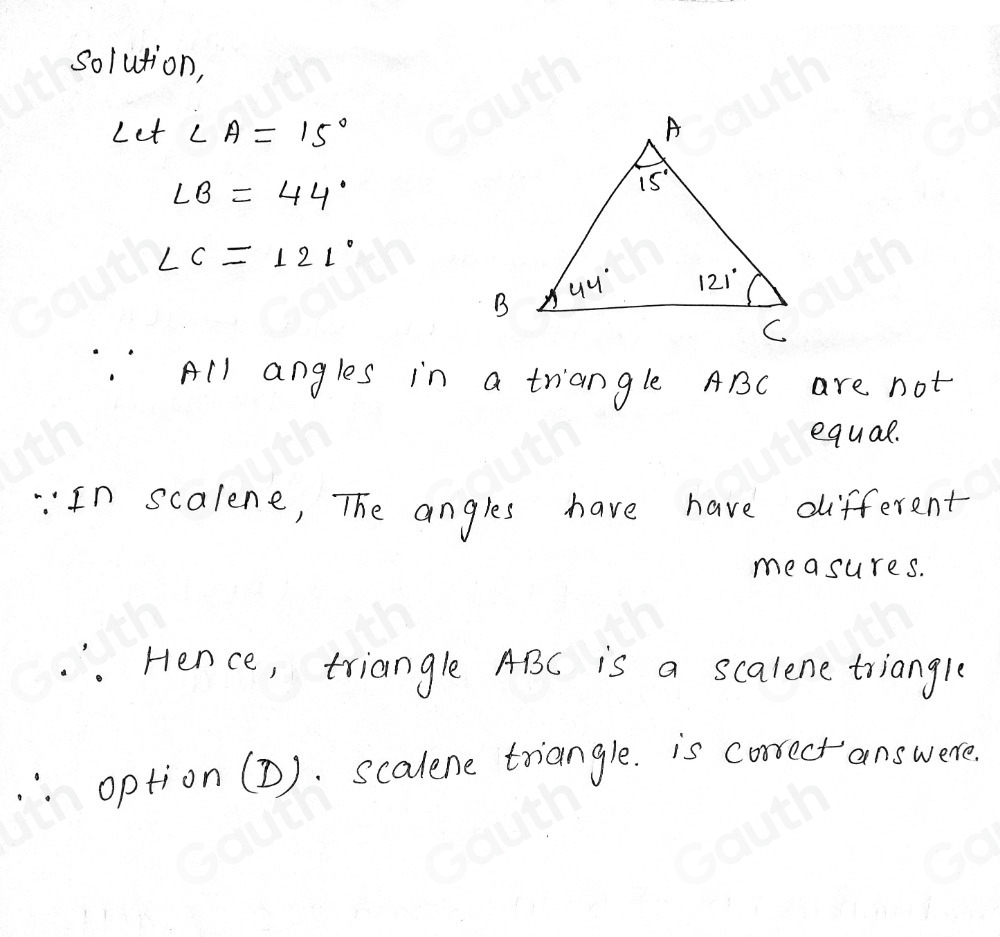 Solution,
Let ∠A = 15°
∠B = 44°
∠C = 121°
A
15°
B
44°
121°
C
∵ All angles in a triangle ABC are not
equal.
∵ In scalene, The angles have have different
measures.
∴ Hence, triangle ABC is a scalene triangle
∴ option (D). scalene triangle. is correct answere.
Gauth